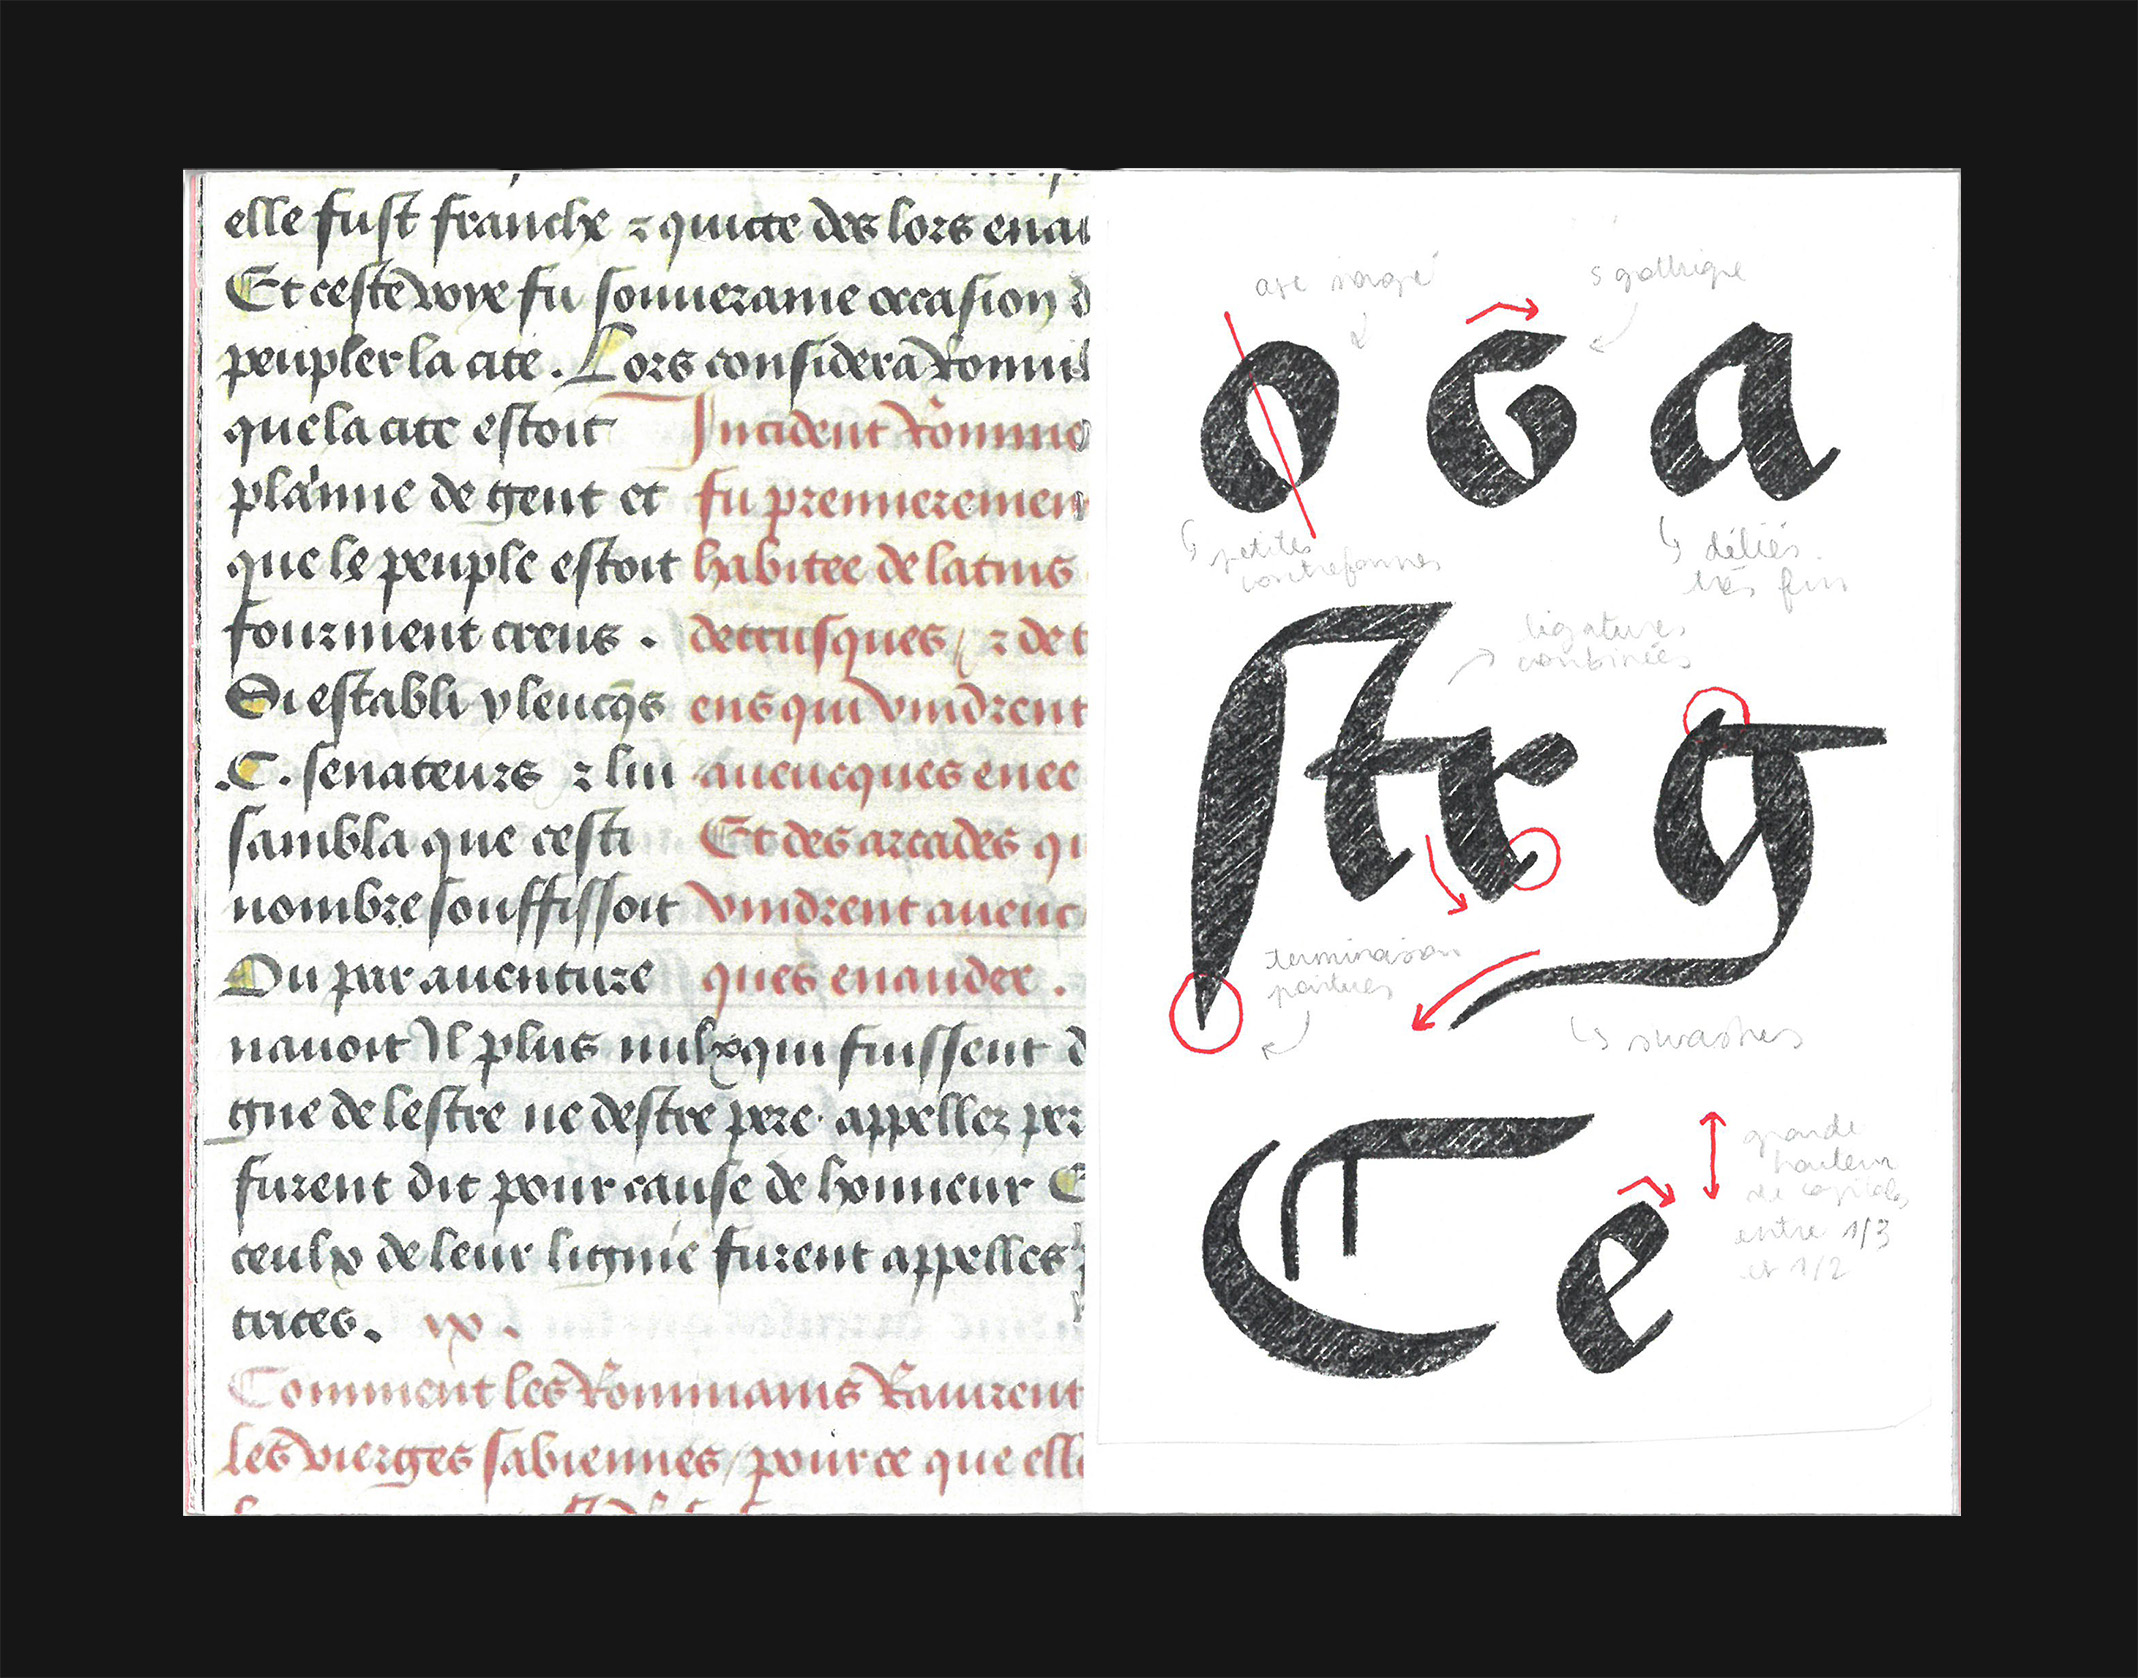 elle fust franche ⁊ quitte des lors en au
Et ceste voye fu souueraine occasion d
peupler la cite . Lors considera Romul
que la cite estoit
plainne de gent et
que le peuple estoit
fourment creus .
Si establi
.C. senateurs ⁊ lui
sambla que cesti
nombre souffissoit
Ou par auenture
nauoit Il plus nulx qui fuissent d
gne de lestre ne destre pere appellez per
furent dit pour cause de honneur E
ceulx de leur lignie furent appelles
trices .
Incident Romme
fu premieremen
habitee de latins
detrusques / ⁊ de t
ens qui vindrent
auecques enee
Et des arcades qu
vindrent auenc
ques enander .
ix .
Comment les Rommains Rauirent
les vierges sabiennes / pource que elle
axe
s gothique
o s a
petites
contreformes
déliés
très fins
ligatures
combinées
str g
terminaison
pointues
swashes
C e
grande
hauteur
de capitales
entre 1/3
et 1/2